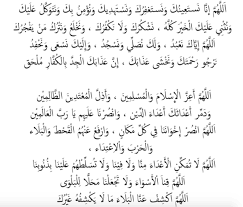 اَللّٰهُمَّ إِنَّا نَسْتَعِينُكَ وَنَسْتَغْفِرُكَ وَنَسْتَهْدِيكَ وَنُؤْمِنُ بِكَ وَنَتَوَكَّلُ عَلَيْكَ
وَنُثْنِي عَلَيْكَ الْخَيْرَ كُلَّهُ ، نَشْكُرُكَ وَلَا نَكْفُرُكَ ، وَنَخْلَعُ وَنَتْرُكُ مَنْ يَفْجُرُكَ
اَللّٰهُمَّ إِيَّاكَ نَعْبُدُ ، وَلَكَ نُصَلِّي وَنَسْجُدُ ، وَإِلَيْكَ نَسْعَى وَنَحْفِدُ
نَرْجُو رَحْمَتَكَ وَنَخْشَى عَذَابَكَ ، إِنَّ عَذَابَكَ الْجِدَّ بِالْكُفَّارِ مُلْحَق
اَللّٰهُمَّ أَعِزَّ الْإِسْلَامَ وَالْمُسْلِمِينَ ، وَأَذِلَّ الْمُعْتَدِينَ الظَّالِمِينَ
وَدَمِّرْ أَعْدَائَكَ أَعْدَاءَ الدِّينِ ، وَانْصُرْنَا عَلَيْهِمْ يَا رَبَّ الْعَالَمِينَ
اَللّٰهُمَّ انْصُرْ إِخْوَانَنَا فِي كُلِّ مَكَانٍ ، وَارْفَعْ عَنْهُمُ الْقَحْطَ وَالْبَلَاءَ
وَالْحَرْبَ وَالْاِعْتِدَاءَ ،
اَللّٰهُمَّ لَا تُمَكِّنِ الْأَعْدَاءَ مِنَّا وَلَا فِينَا وَلَا تُسَلِّطْهُمْ عَلَيْنَا بِذُنُوبِنَا
اَللّٰهُمَّ قِنَا الْأَسْوَاءَ وَلَا تَجْعَلْنَا مَحَلًّا لِلْبَلْوَى
اَللّٰهُمَّ اكْشِفْ عَنَّا الْبَلَاءَ مَا لَا يَكْشِفُهُ غَيْرُكَ